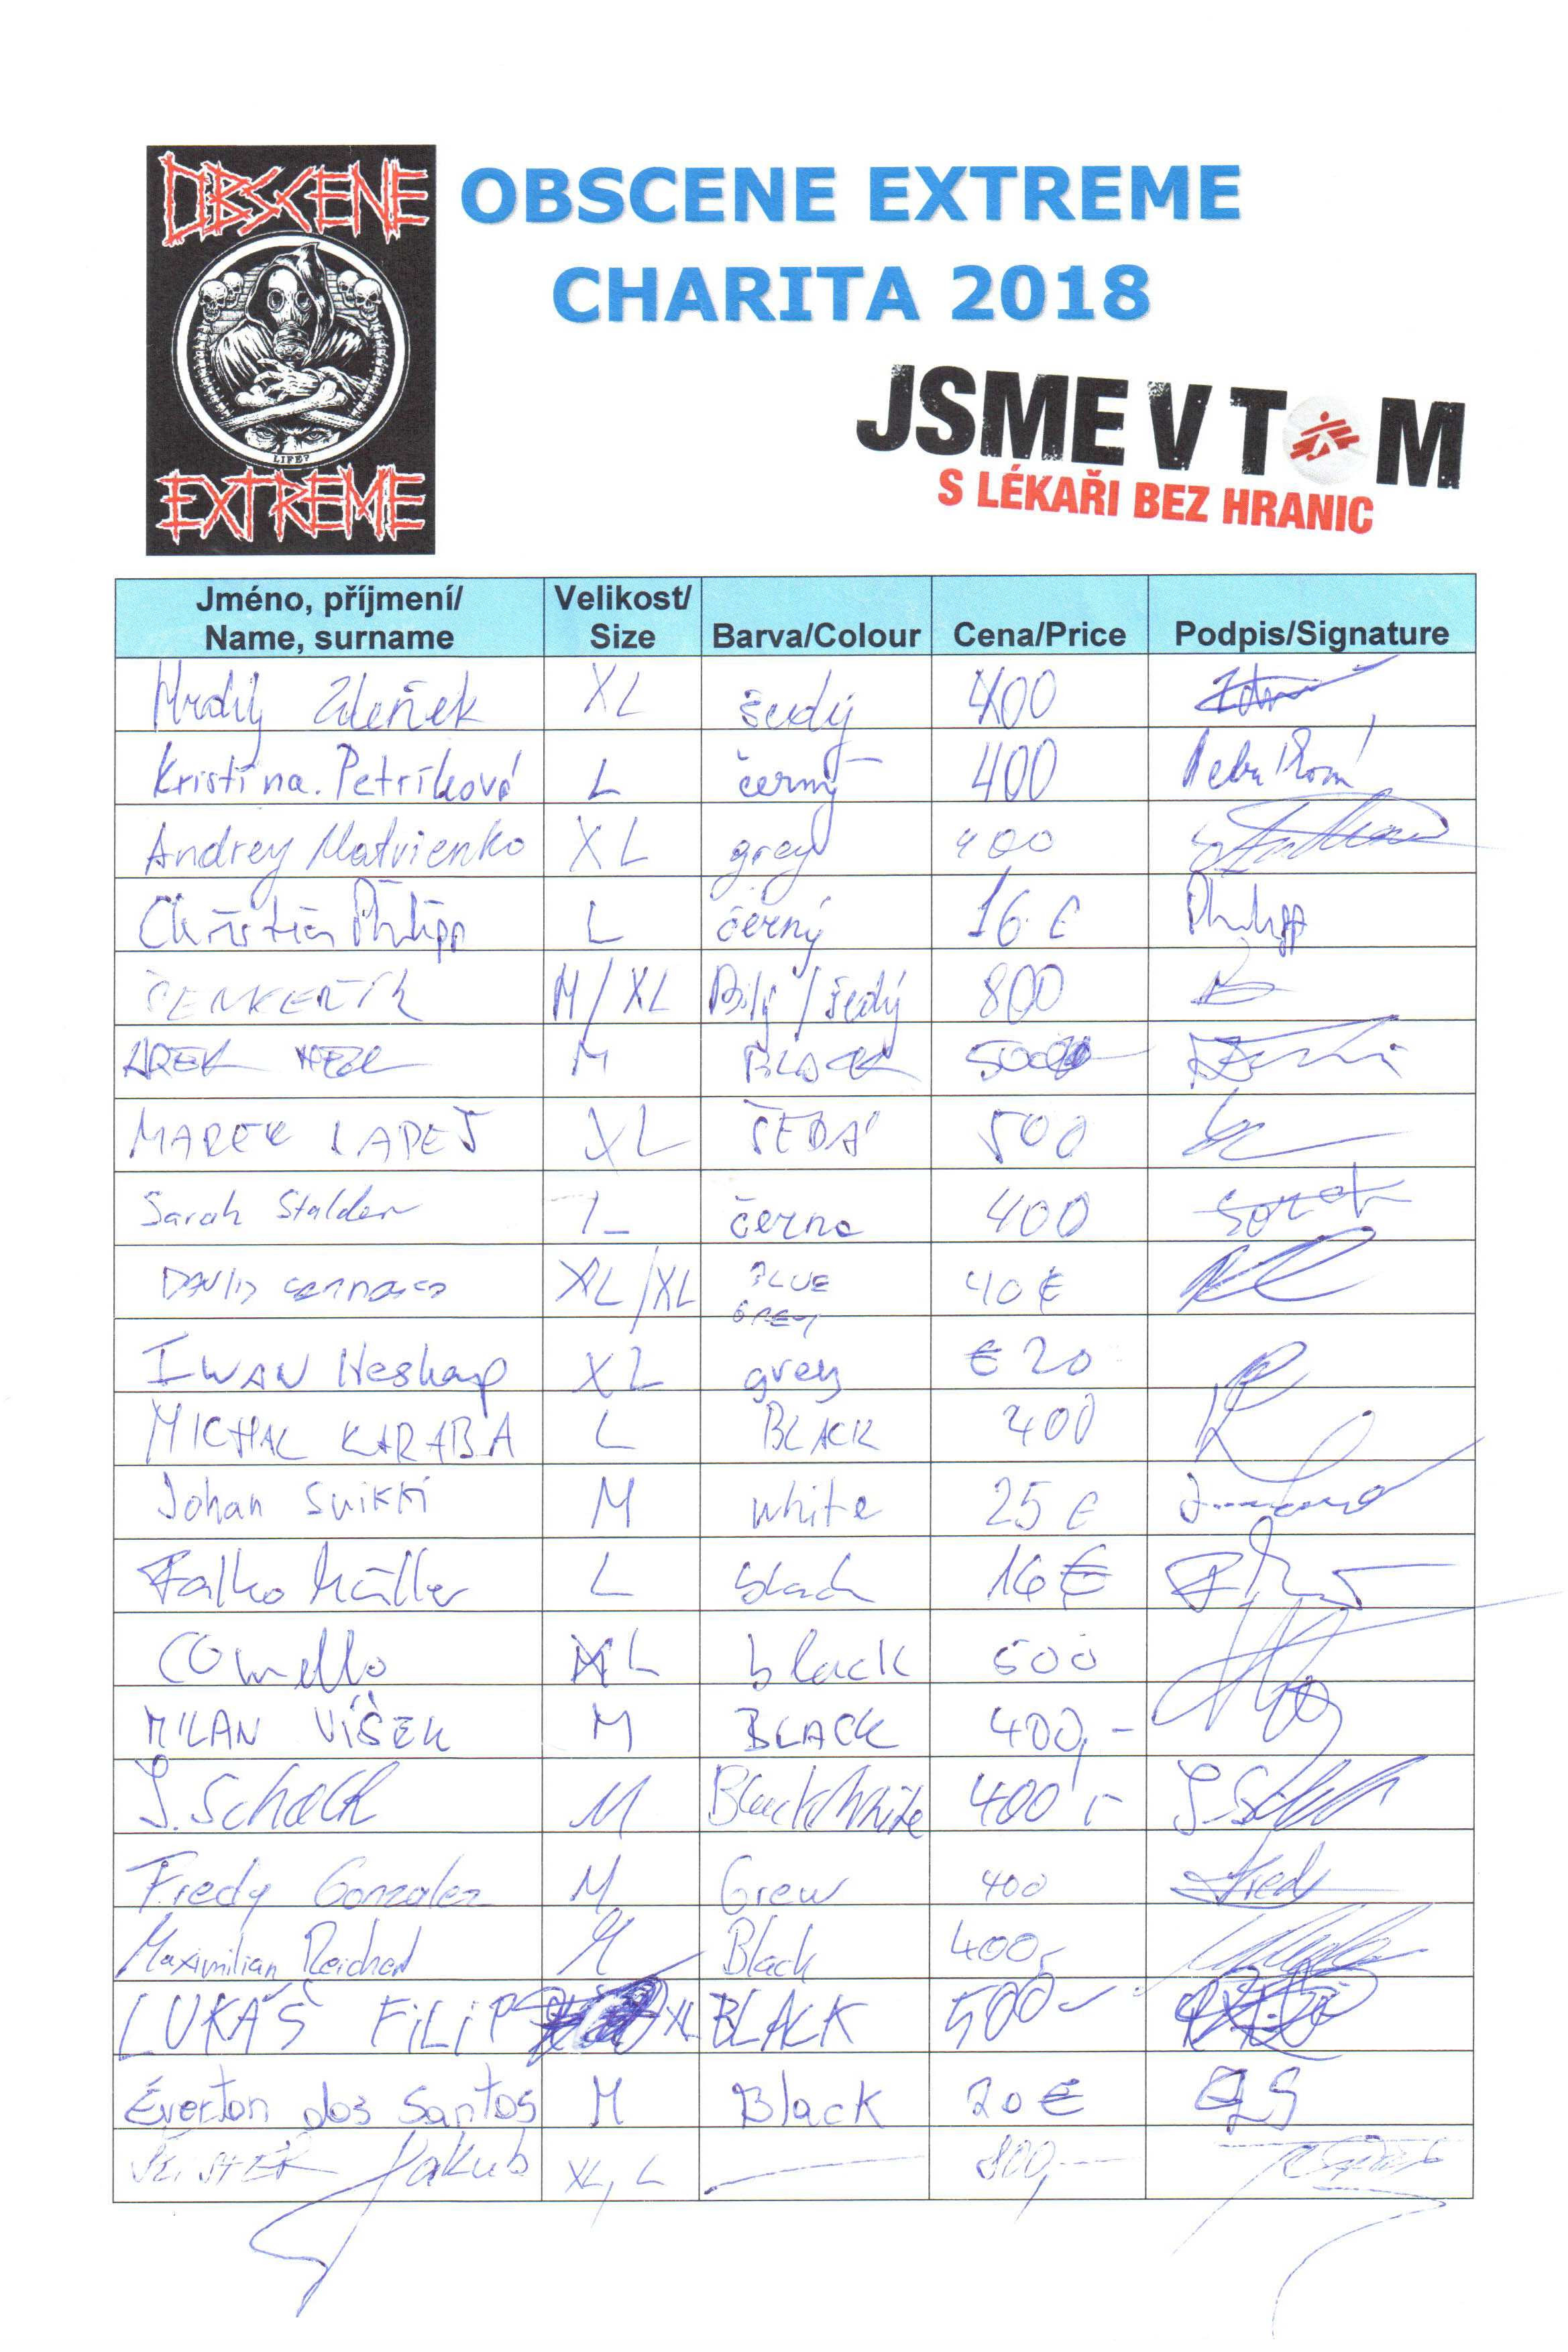 OBSCENE
LIFE?
EXTREME
OBSCENE EXTREME
CHARITA 2018
JSME V TOM
S LÉKAŘI BEZ HRANIC
Jméno, příjmení/ Name, surname Velikost/ Size Barva/Colour Cena/Price Podpis/Signature
Hrdý Zdeněk XL šedý 400
Kristína Petríková L černý 400
Andrey Matvienko XL grey 400
Christian Philipp L černý 16 € Philipp
M/XL Bílý/šedý 800
AREK M BLACK
MAREK XL ŠEDÁ 500
Sarah Stalder L černa 400 Sarah
DAVID XL/XL BLUE GREY 40 €
IWAN Heskamp XL grey € 20
MICHAL KARABA L BLACK 400
Johan Suikki M white 25 €
Falko Müller L black 16 €
L black 500
MILAN VÍŠEK M BLACK 400,-
S. Schalk M Black/White 400,-
Fredy Gonzalez M Grew 400 Fredy
Maximilian Reichert M Black 400,-
LUKÁŠ FiLiP XL BLACK 500,-
Everton dos Santos M Black 20 € EDS
Jakub XL, L 800,-